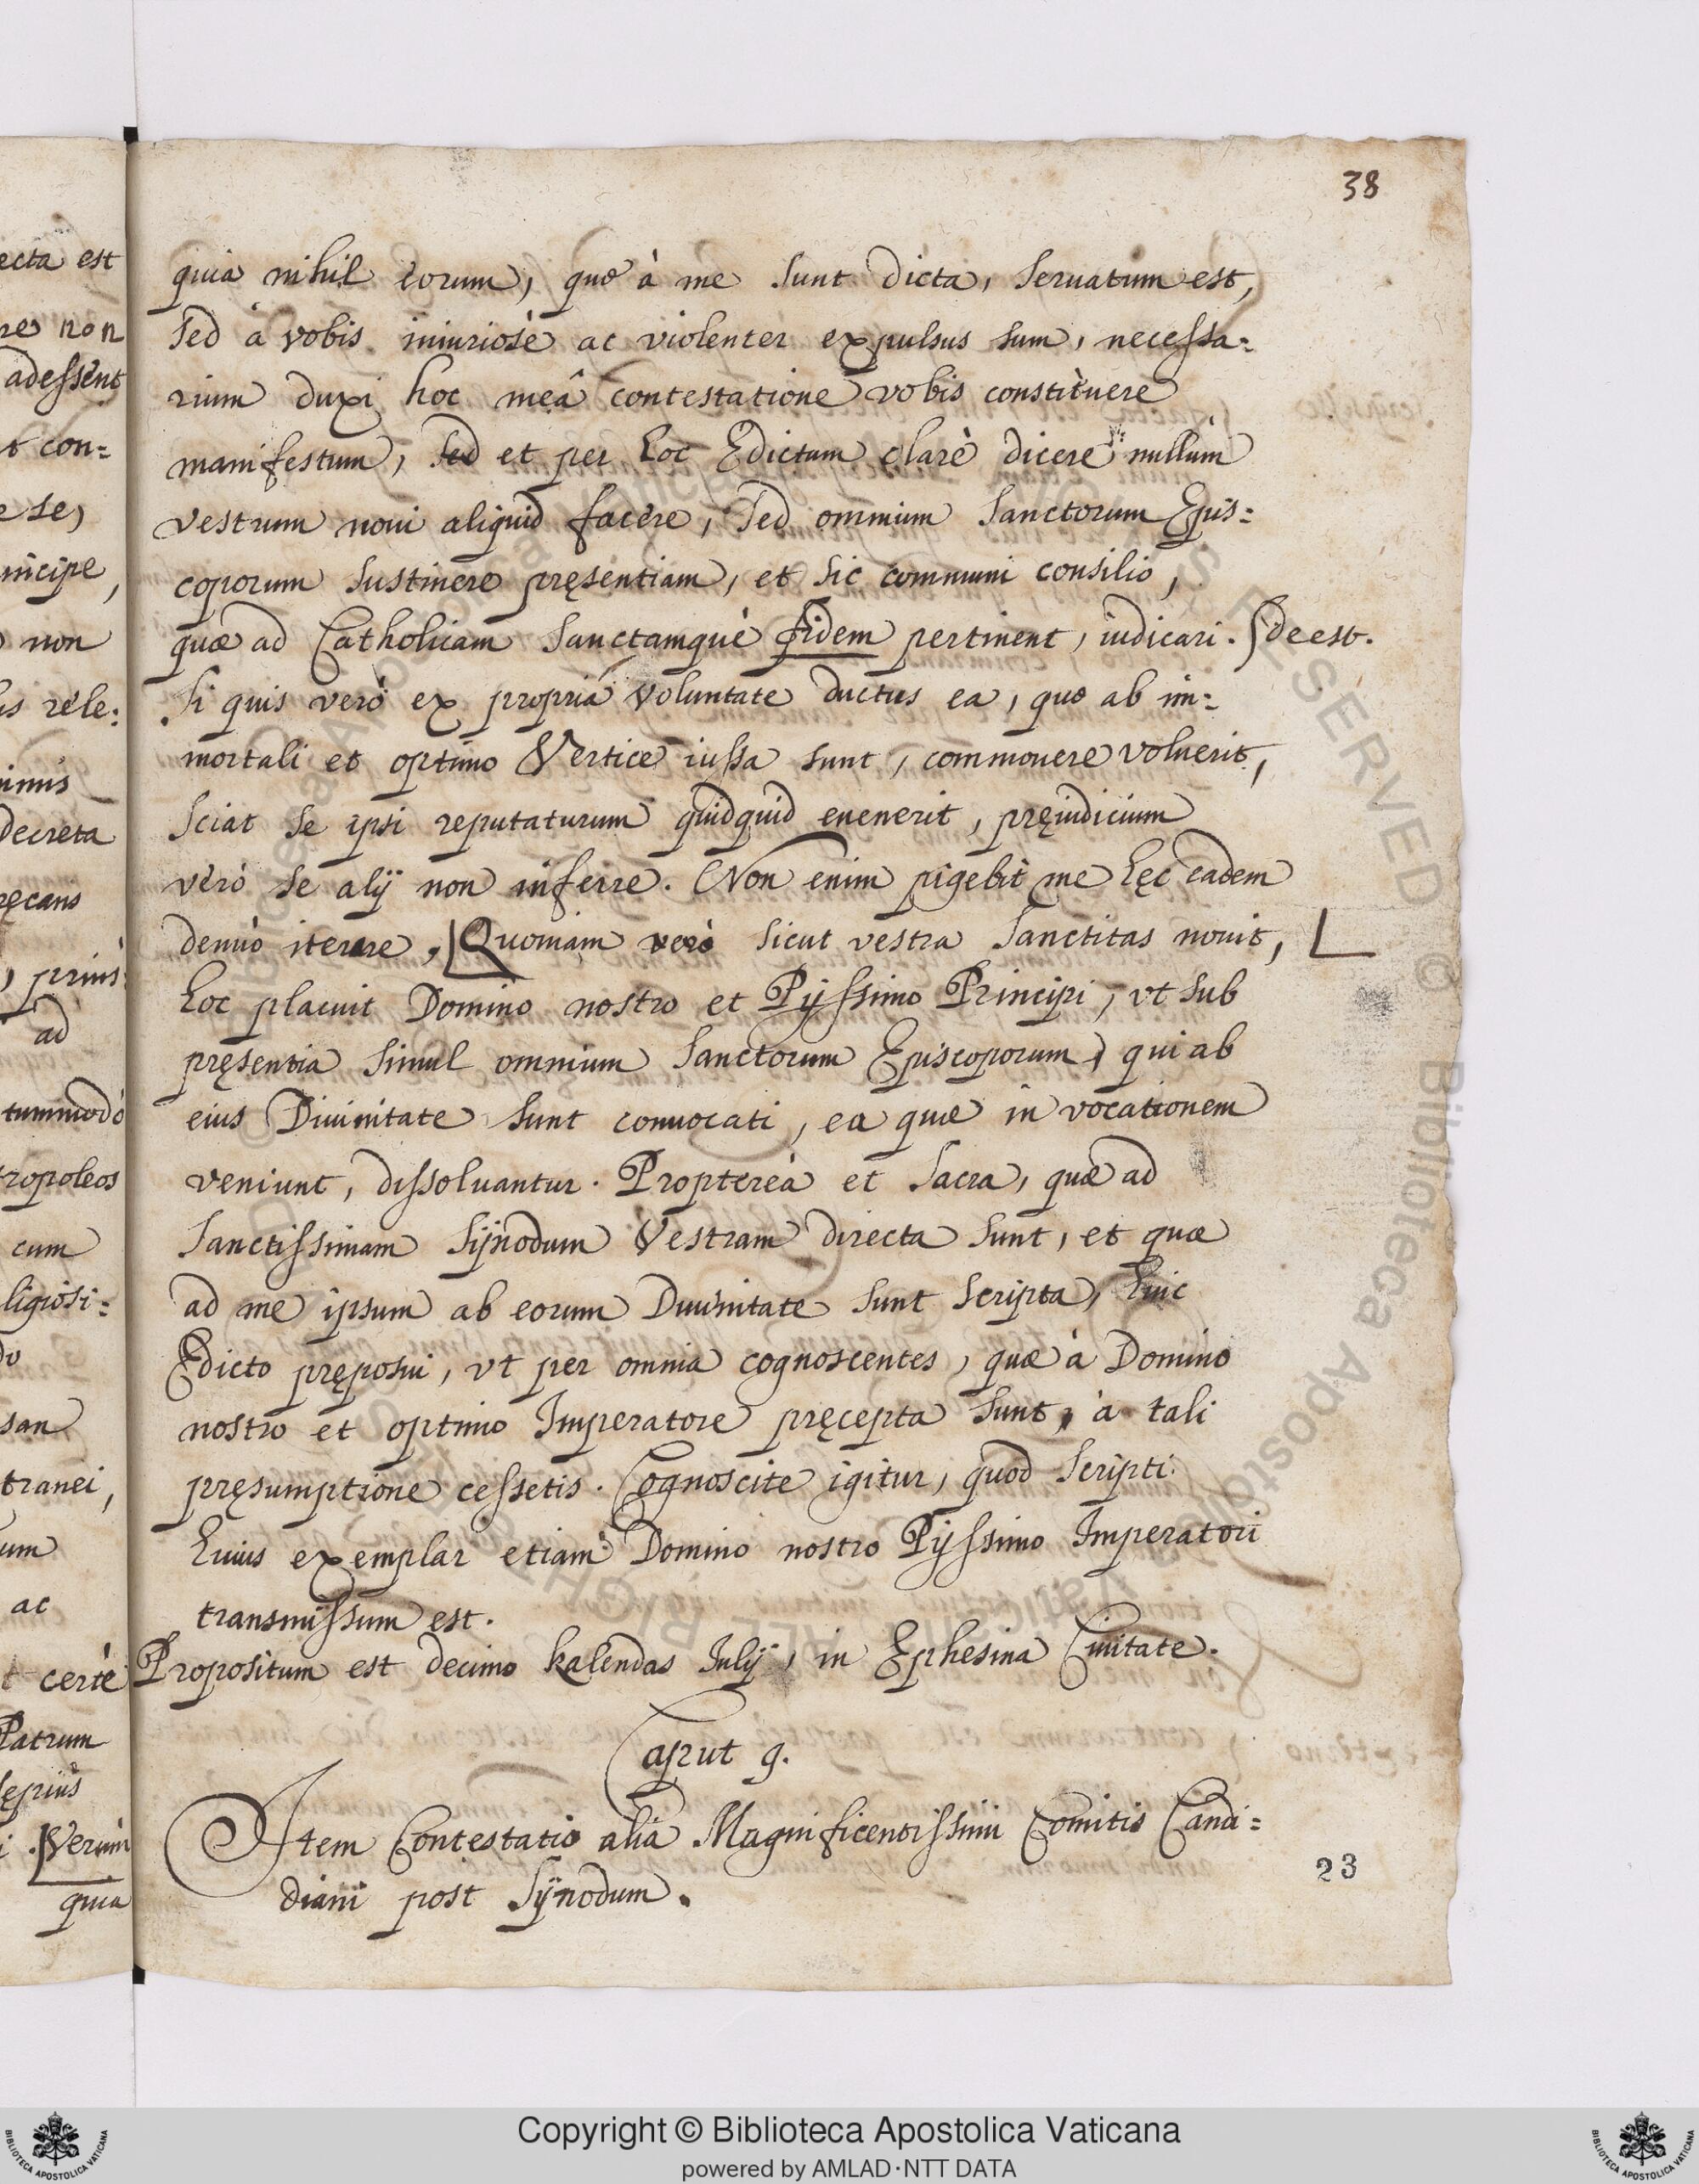 38
quia nihil eorum, quæ à me sunt dicta, seruatum est,
sed à vobis iniuriosè ac violenter expulsus sum, necessa=
rium duxi hoc meâ contestatione vobis constituere
manifestum, sed et per hoc Edictum clarè dicere nullum
vestrum noui aliquid facere, sed omnium Sanctorum Epis=
coporum sustinere pręsentiam, et sic communi consilio,
quæ ad Catholicam Sanctamquè fidem pertinent, iudicari. deest.
Si quis verò ex propriâ voluntate ductus ea, quæ ab im=
mortali et optimo Vertice iussa sunt, commouere voluerit,
sciat se ipsi reputaturum quidquid euenerit, pręiudicium
verò se alij non inferre. Non enim pigebit me hęc eadem
denuò iterare. Quoniam verò sicut vestra Sanctitas nouit,
hoc placuit Domino nostro et Pijssimo Principi, vt sub
pręsentia simul omnium Sanctorum Episcoporum, qui ab
eius Diuinitate sunt conuocati, ea quæ in vocationem
veniunt, dissoluantur. Proptereà et Sacra, quæ ad
Sanctissimam Sÿnodum Vestram directa sunt, et quæ
ad me ipsum ab eorum Diuinitate sunt scripta, huic
Edicto pręposui, vt per omnia cognoscentes, quæ à Domino
nostro et optimo Imperatore pręcepta sunt, à tali
pręsumptione cessetis. Cognoscite igitur, quod scripti
huius exemplar etiam Domino nostro Pijssimo Imperatori
transmissum est.
Propositum est decimo kalendas Julij, in Ephesina Ciuitate.
Caput 9.
Item Contestatio alia Magnificentissimi Comitis Candi=
diani post Sÿnodum.
23
ecta est
re non
adessent
t con=
e se,
ncipe,
non
is rele=
nimis
Decreta
ręcans
, priùs
ad
tummodò
tropoleos
cum
ligiosi=
san
tranei,
um
ac
certè
Patrum
sępiùs
i. Verùm
quia
Copyright © Biblioteca Apostolica Vaticana
powered by AMLAD·NTT DATA